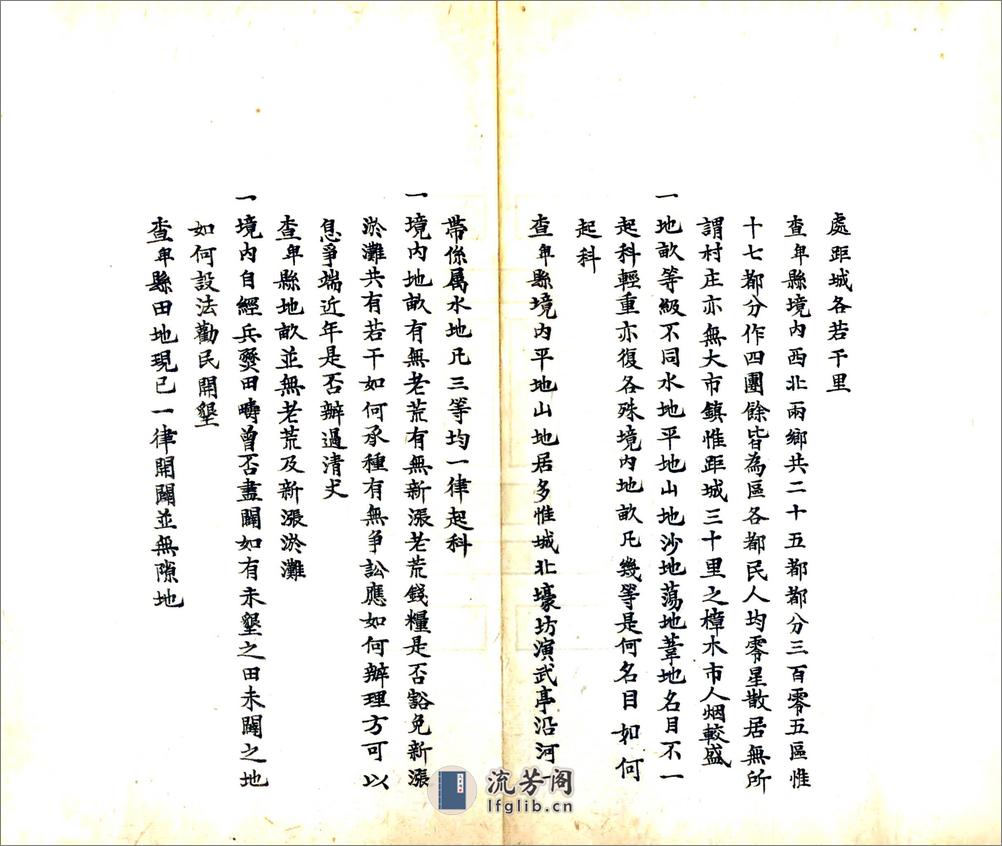 處距城各若干里
查卑縣境內西北兩鄉共二十五都都分三百零五區惟
十七都分作四團餘皆為區各都民人均零星散居無所
謂村庄亦無大市鎮惟距城三十里之樟木市人烟較盛
一地畝等級不同水地平地山地沙地蕩地葦地名目不一
起科輕重亦復各殊境內地畝凡幾等是何名目如何
起科
查卑縣境內平地山地居多惟城北壕坊演武亭沿河一
帶係屬水地凡三等均一律起科
一境內地畝有無老荒有無新漲老荒錢糧是否豁免新漲
淤灘共有若干如何承種有無爭訟應如何辦理方可以
息爭端近年是否辦過清丈
查卑縣地畝並無老荒及新漲淤灘
一境內自經兵燹田疇曾否盡闢如有未墾之田未闢之地
如何設法勸民開墾
查卑縣田地現已一律開闢並無隙地
流芳阁
lfglib.cn